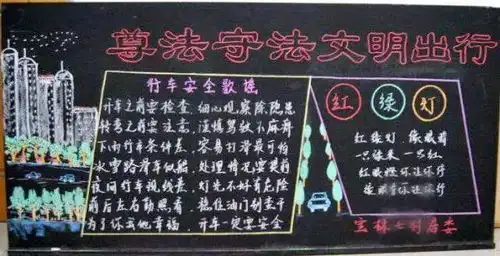 尊法守法文明出行
行车安全歌谣
开车之前要检查 细心观察除隐患
转弯之前要注意 谨慎驾驶不麻痹
下雨行车条件差 容易打滑最可怕
冰雪路滑车似船 处理情况要提前
夜间行车视线差 灯光不好有危险
前后左右勤照看 稳住油门刹车
为了你我他幸福 开车一定要安全
红 绿 灯
红绿灯 像眼睛
一只绿来一只红
红眼睛